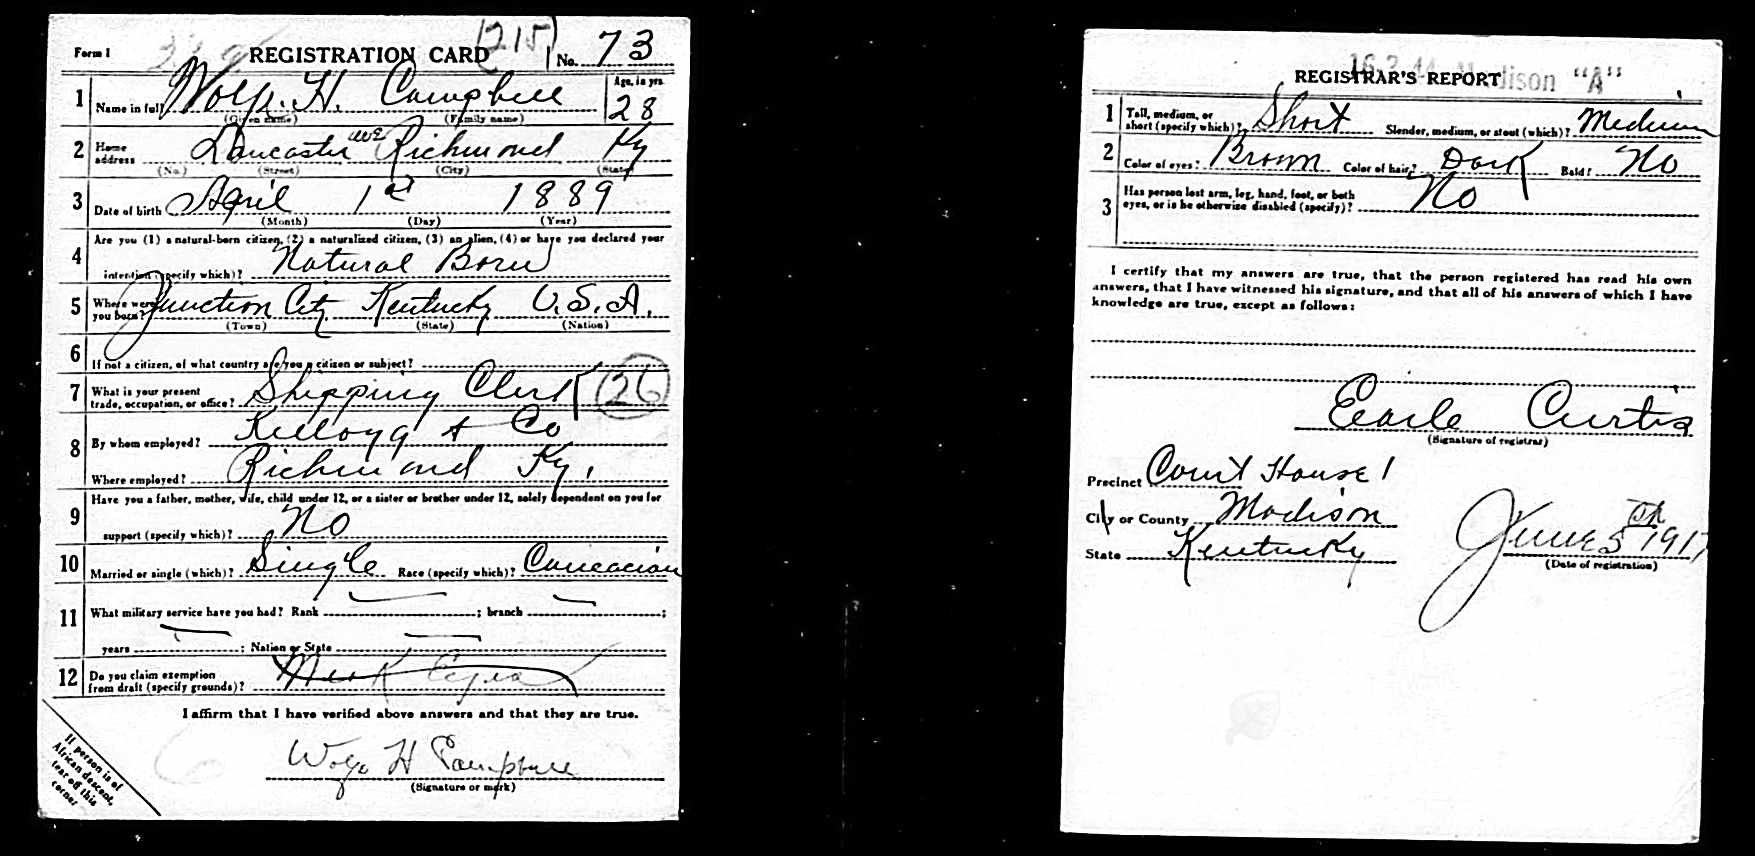 Form 1 REGISTRATION CARD 215 No. 73
1 Name in full Wolp. H. Campbell Age, in yrs. 28
(Given name) (Family name)
2 Home address Lancaster ave Richmond Ky
(No.) (Street) (City) (State)
3 Date of birth April 1st 1889
(Month) (Day) (Year)
4 Are you (1) a natural-born citizen, (2) a naturalized citizen, (3) an alien, (4) or have you declared your
intention (specify which)? Natural Born
5 Where were you born? Junction City Kentucky U.S.A.
(Town) (State) (Nation)
6 If not a citizen, of what country are you a citizen or subject?
7 What is your present trade, occupation, or office? Shipping Clerk 26
8 By whom employed? Kellogg & Co
Where employed? Richmond Ky.
9 Have you a father, mother, wife, child under 12, or a sister or brother under 12, solely dependent on you for
support (specify which)? No
10 Married or single (which)? Single Race (specify which)? Caucasian
11 What military service have you had? Rank ; branch ;
years ; Nation or State
12 Do you claim exemption from draft (specify grounds)?
I affirm that I have verified above answers and that they are true.
H Campbell
(Signature or mark)
If person is of
African descent,
tear off this
corner
Madison "A"
REGISTRAR'S REPORT
1 Tall, medium, or short (specify which)? Short Slender, medium, or stout (which)? Medium
2 Color of eyes? Brown Color of hair? Dark Bald? No
3 Has person lost arm, leg, hand, foot, or both
eyes, or is he otherwise disabled (specify)? No
I certify that my answers are true, that the person registered has read his own
answers, that I have witnessed his signature, and that all of his answers of which I have
knowledge are true, except as follows:
Earle Curtis
(Signature of registrar)
Precinct Court House 1
City or County Madison
State Kentucky
June 5th 1917
(Date of registration)